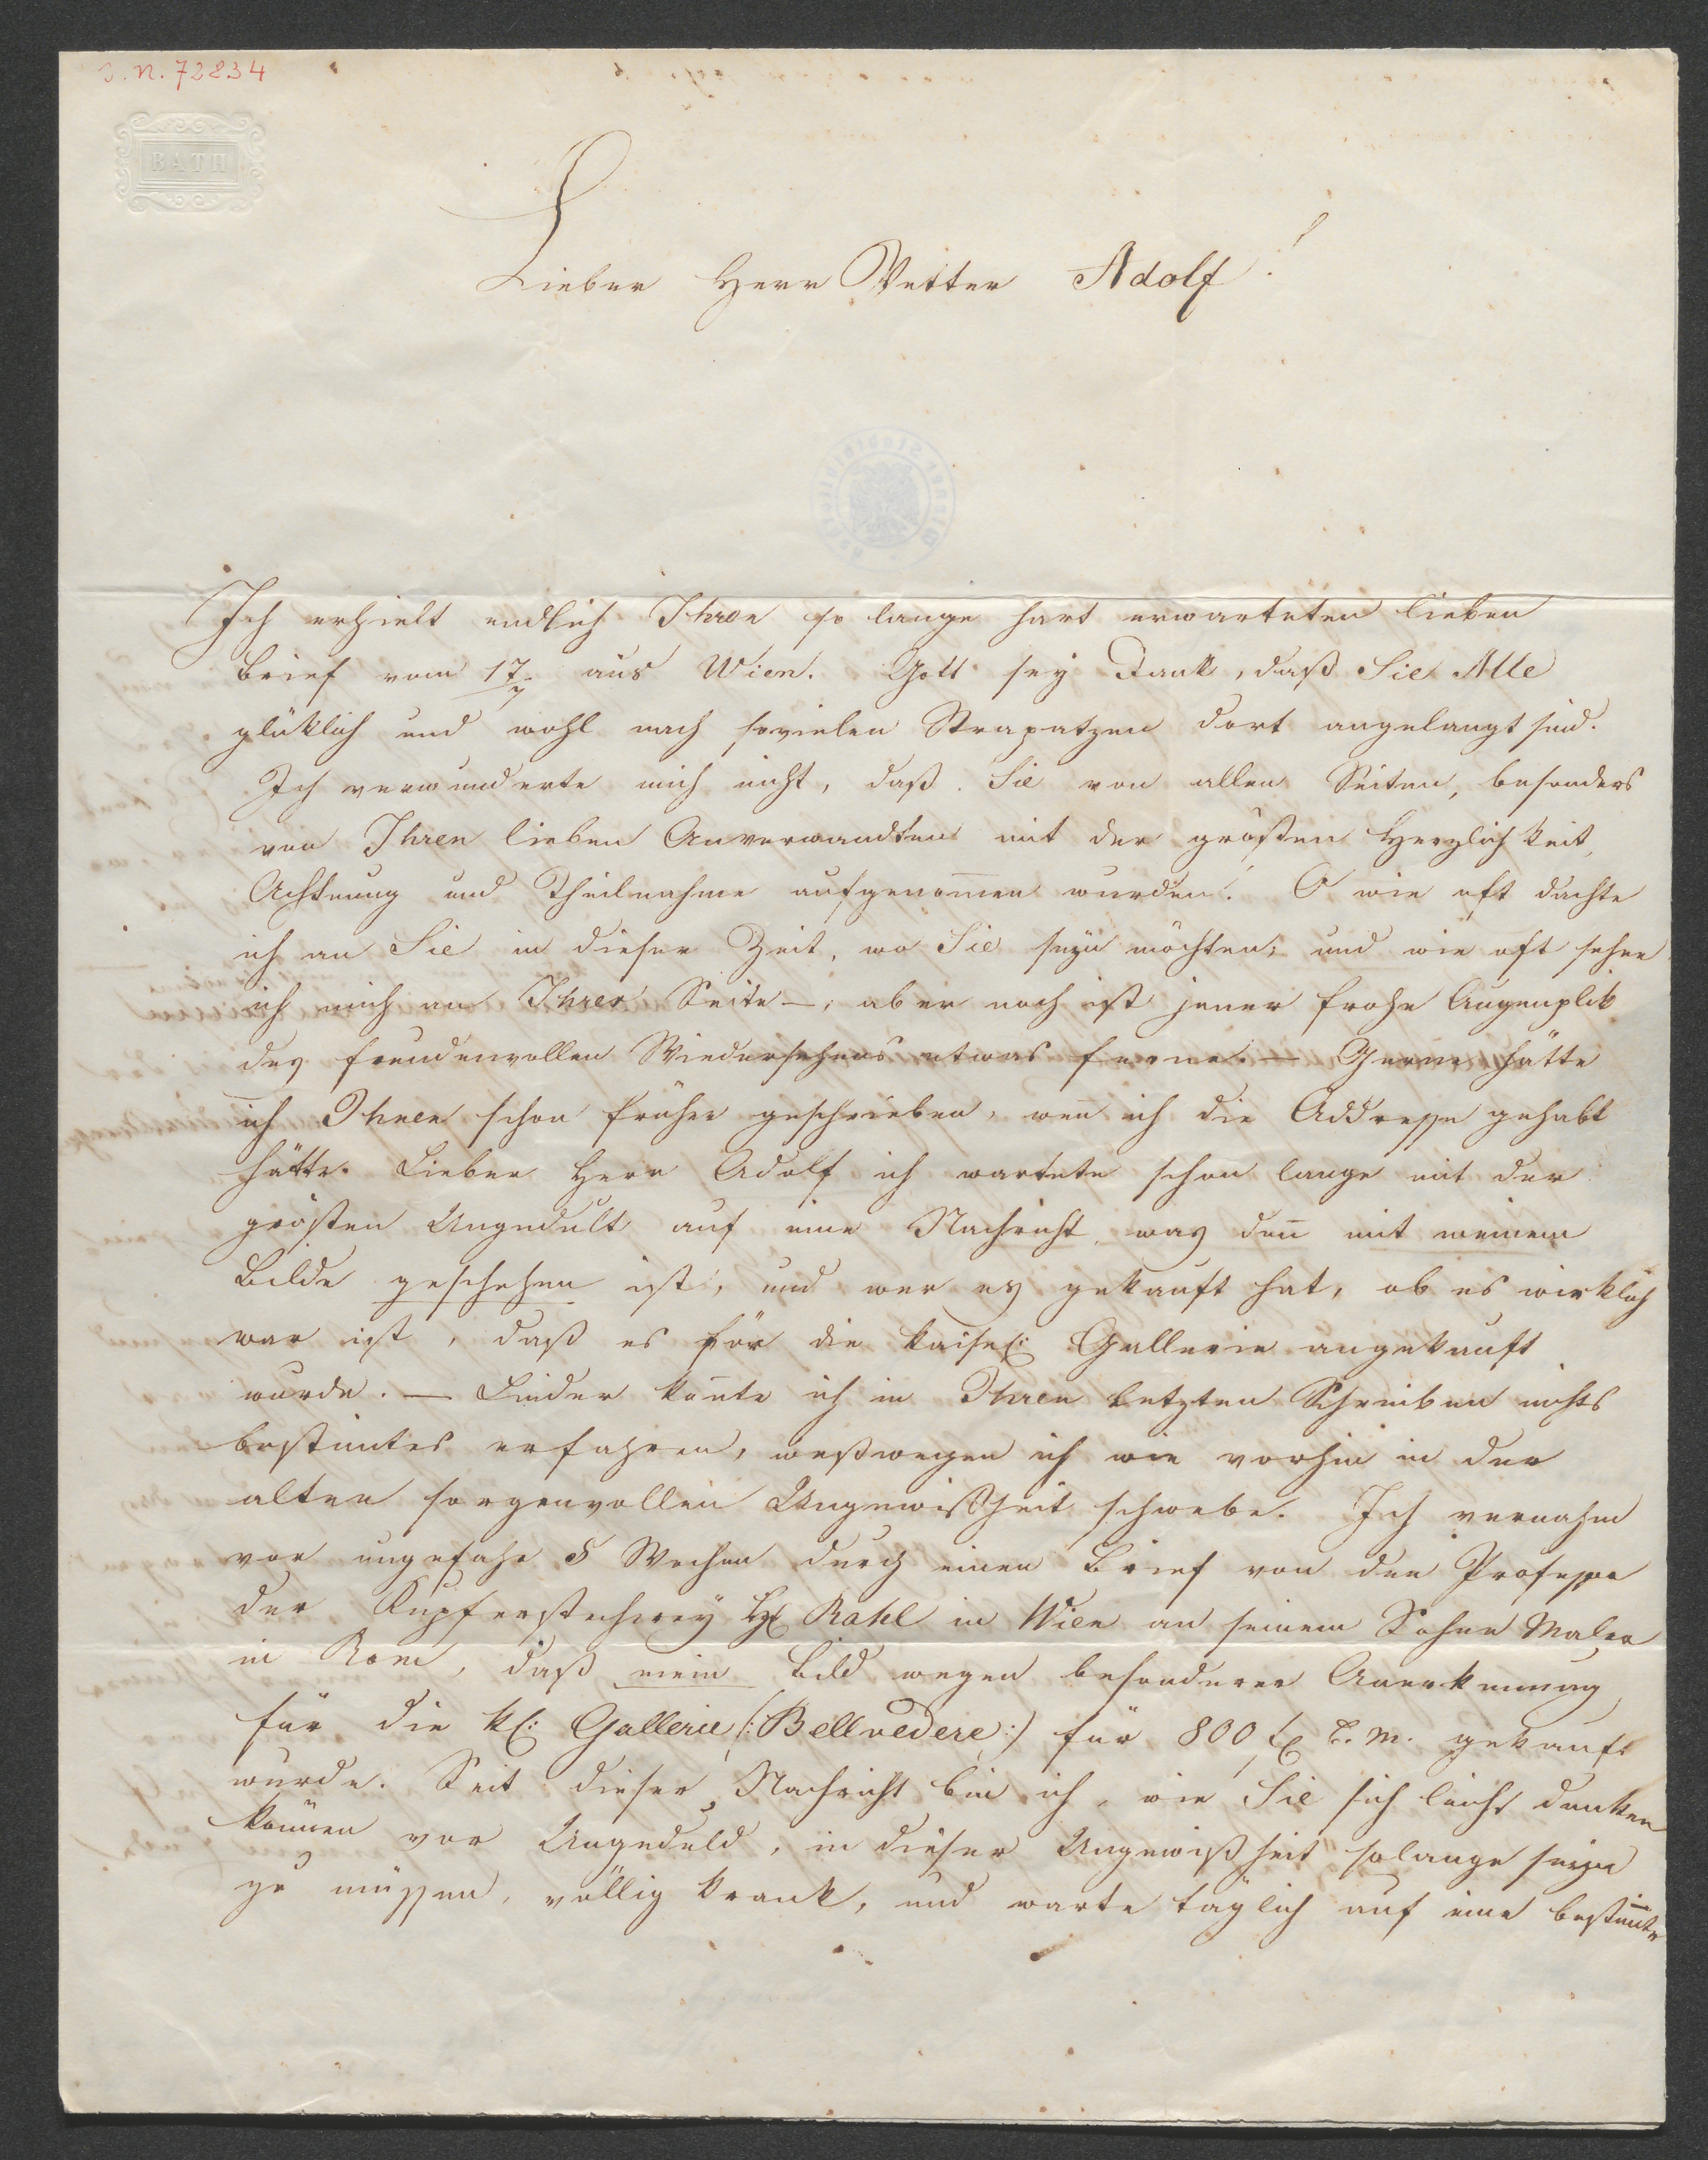 J. N. 72834
BATH
Lieber Herr Vetter Adolf!
Ich erhielt endlich Ihren so lange hart erwarteten lieben
Brief vom 17/7 aus Wien. Gott sey Dank, daß Sie Alle
glüklich und wohl nach sovielen Strapatzen dort angelangt sind.
Ich verwunderte mich nicht, daß Sie von allen Seiten, besonders
von Ihren lieben Anverwandten mit der größten Herzlichkeit,
Achtung und Theilnahme aufgenom̅en wurden! O wie oft dachte
ich an Sie in dieser Zeit, wo Sie seyn möchten; und wie oft sehne
ich mich an Ihrer Seite –; aber noch ist jener frohe Augenplik
des freudenvollen Wiedersehens etwas ferne. – Gerne hätte
ich Ihnen schon früher geschrieben, wen̅ ich die Addresse gehabt
hätte. Lieber Herr Adolf ich wartete schon lange mit der
grösten Ungedult auf eine Nachricht, was den̅ mit meinem
Bilde geschehen ist, und wer es gekauft hat, ob es wirklich
war ist, daß es för die kaiserl: Gallerie angekauft
wurde. – Leider kon̅te ich in Ihren letzten Schreiben nichts
bestimtes erfahren, weßwegen ich wie vorhin in der
alten sorgenvollen Ungewißheit schwebe. Ich vernahm
vor ungefahr 5 Wochen durch einen Brief von den Professor
der Kupferstecherey H: Rahl in Wien an seinem Sohne Maler
in Rom, daß mein Bild wegen besonderer Anerkennung
für die kl: Gallerie (:Bellvedere:) für 800 f C. M. gekauft
wurde. Seit dieser Nachricht bin ich, wie Sie sich leicht denken
können vor Ungeduld, in dieser Ungewißheit solange seyn
zu müssen, völlig krank, und warte täglich auf eine bestim̅te